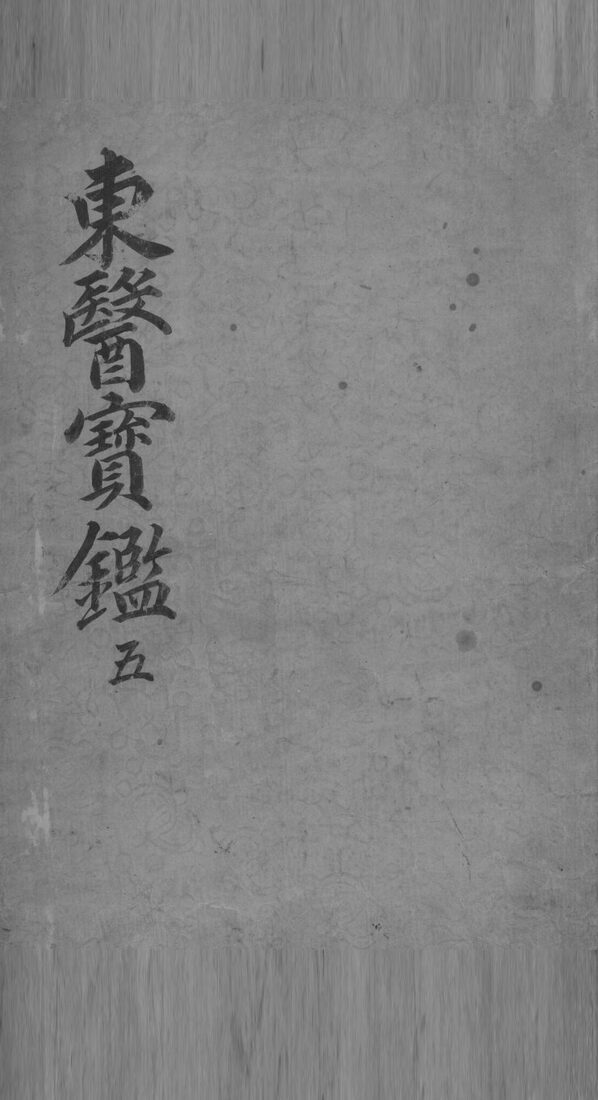 東醫寶鑑 五